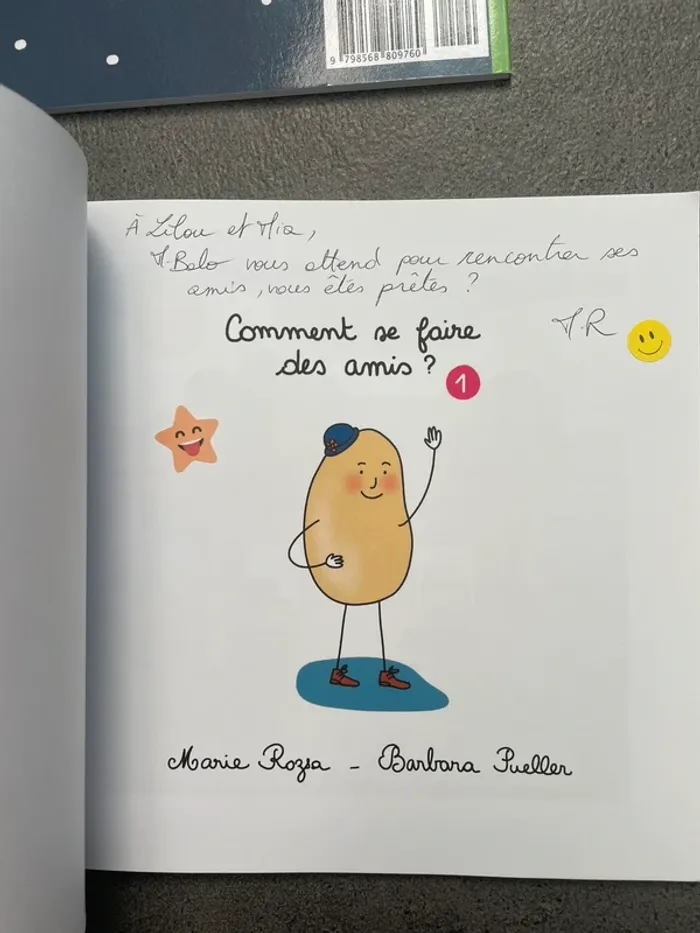 9 798568 809760
À Lilou et Mia,
M. Balo vous attend pour rencontrer ses
amis, vous êtes prêtes ?
M.R
Comment se faire
des amis ?
1
Marie Rozsa - Barbara Pueller